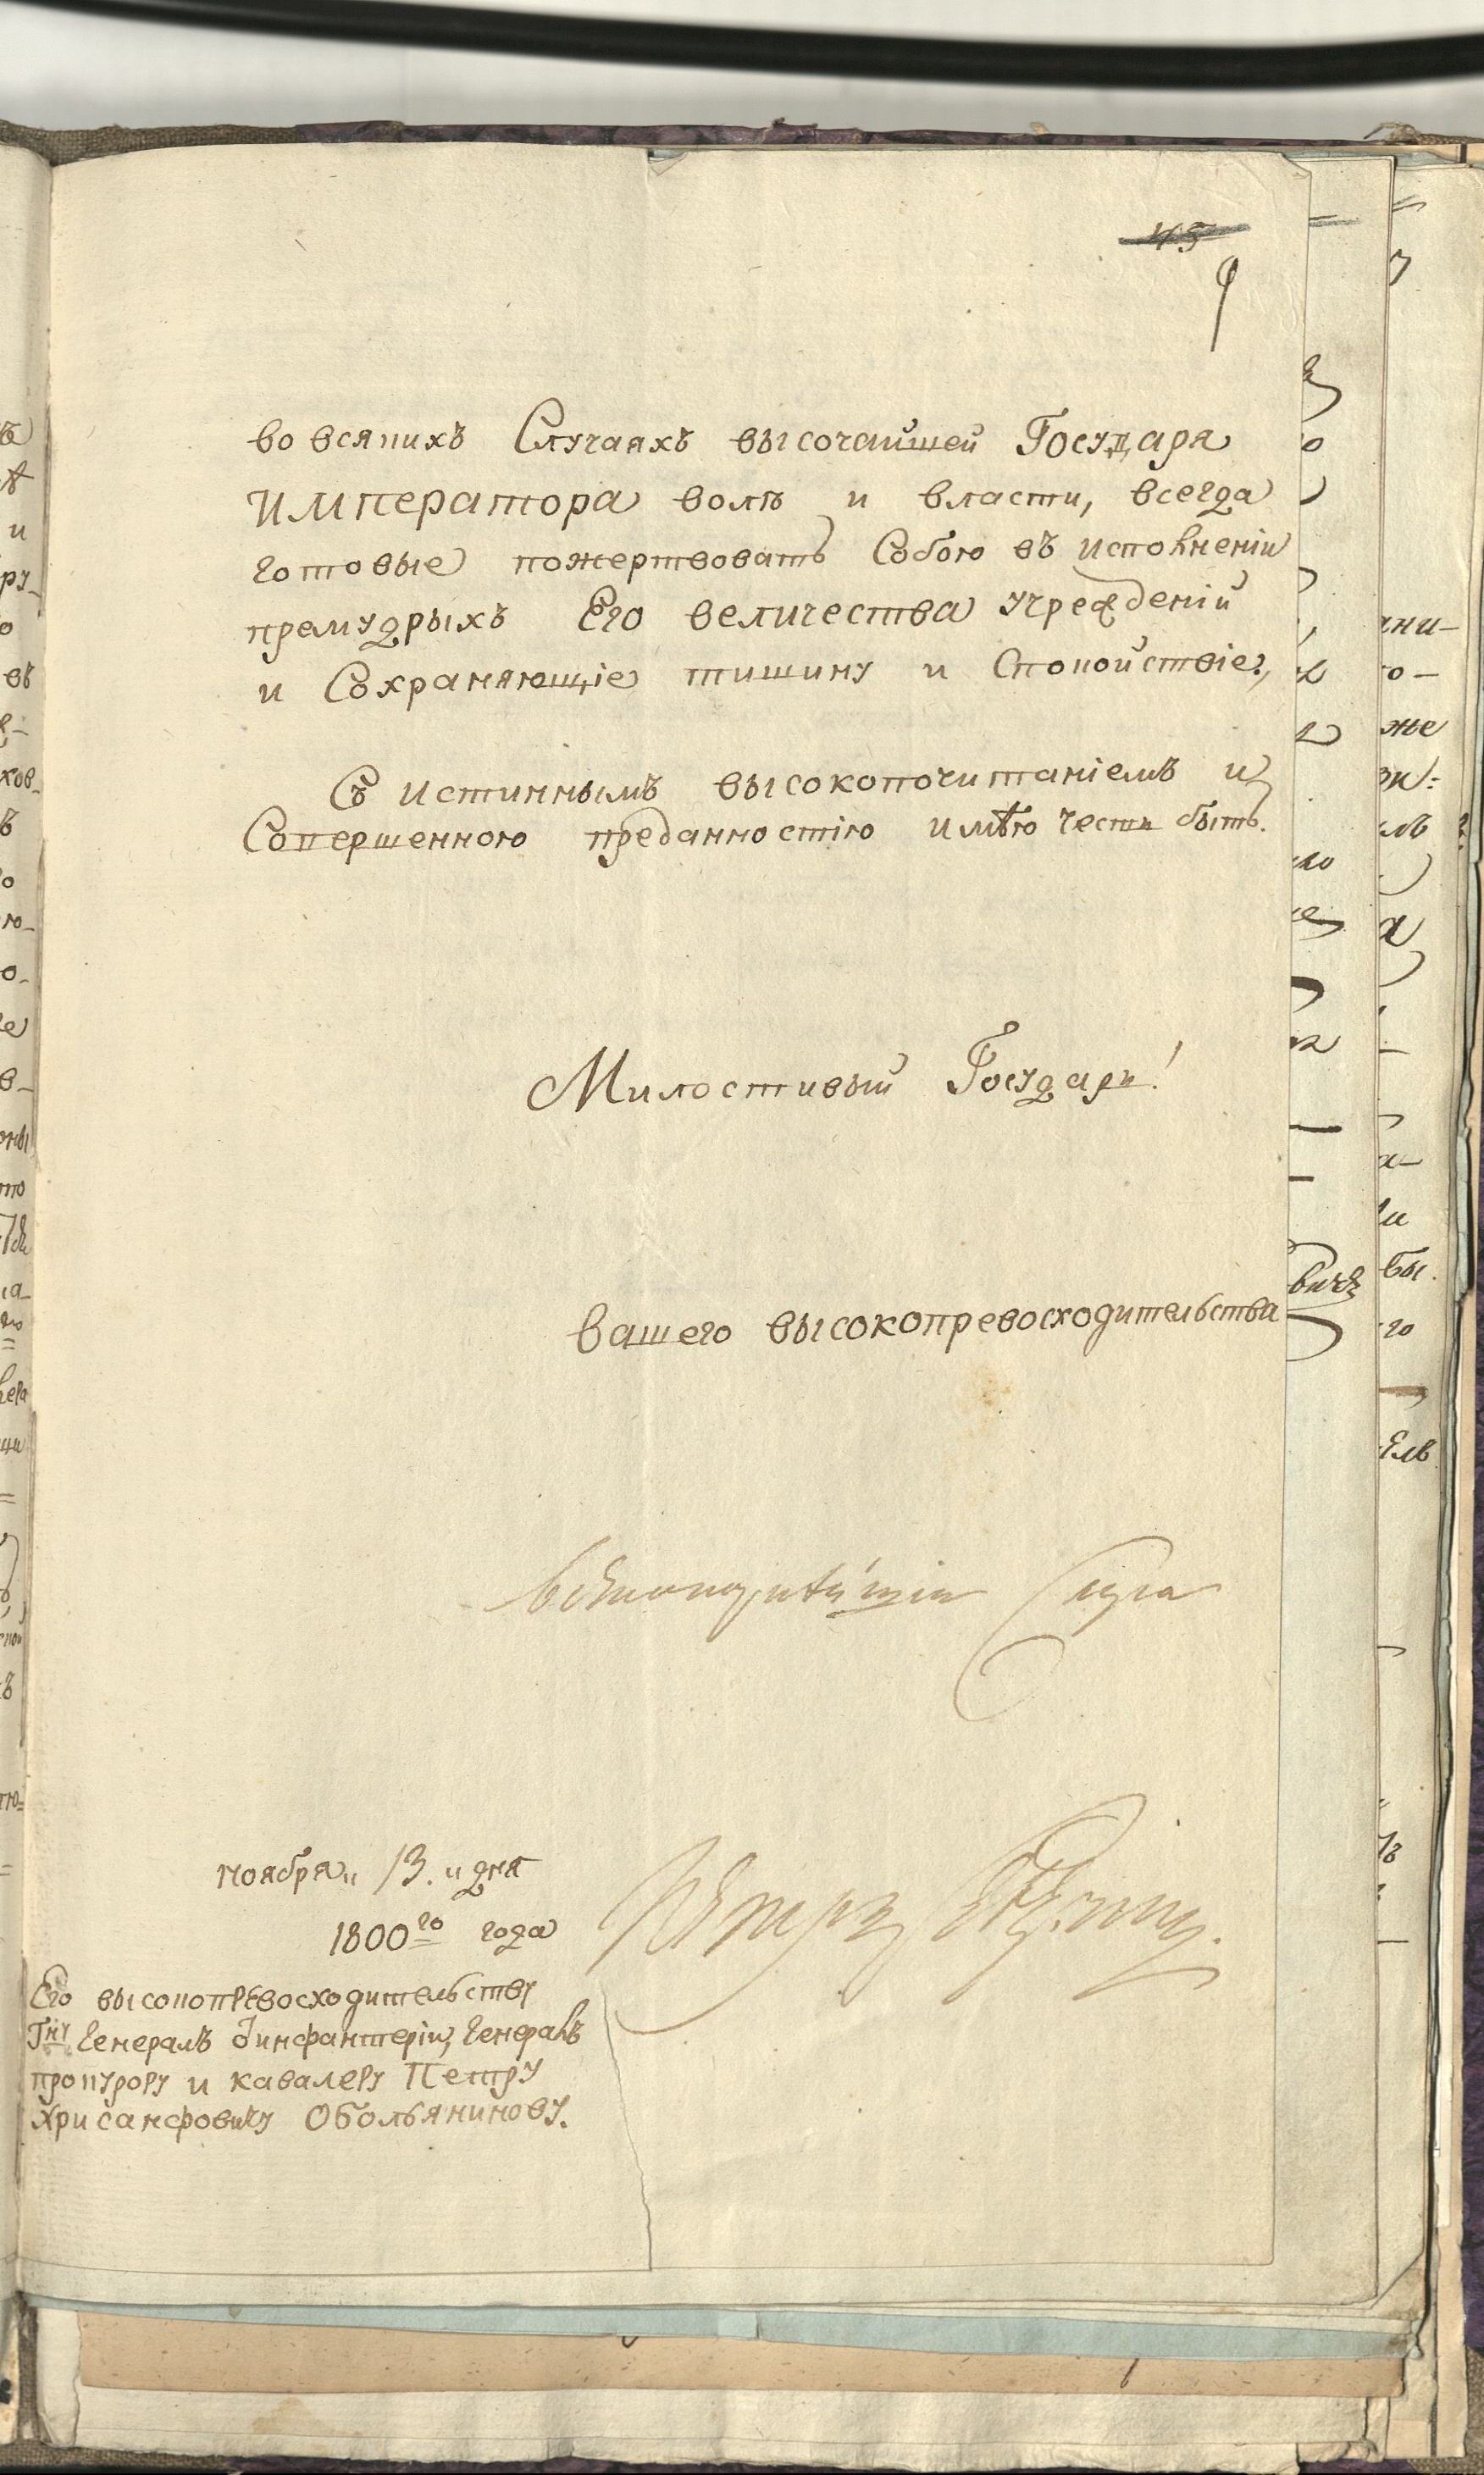 45
9
во всякихъ Случаяхъ высочайшей Государя
Императора волѣ и власти, всегда
готовые пожертвовать Собою въ исполненіи
премудрыхъ Его величества учрежденій
и Сохраняющіе тишину и Спокойствіе,
Съ истиннымъ высокопочитаніемъ и
Совершенною преданностію имѣю честь быть.
Милостивый Государь!
вашего высокопревосходительства
Слуга
Петръ
ноября „ 13. „ дня
1800го года
Его высокопревосходительству
Гну Генералъ Ѻинфантеріи, Генералъ
прокурору и кавалеру Петру
Хрисанфовичу Обольянинову.